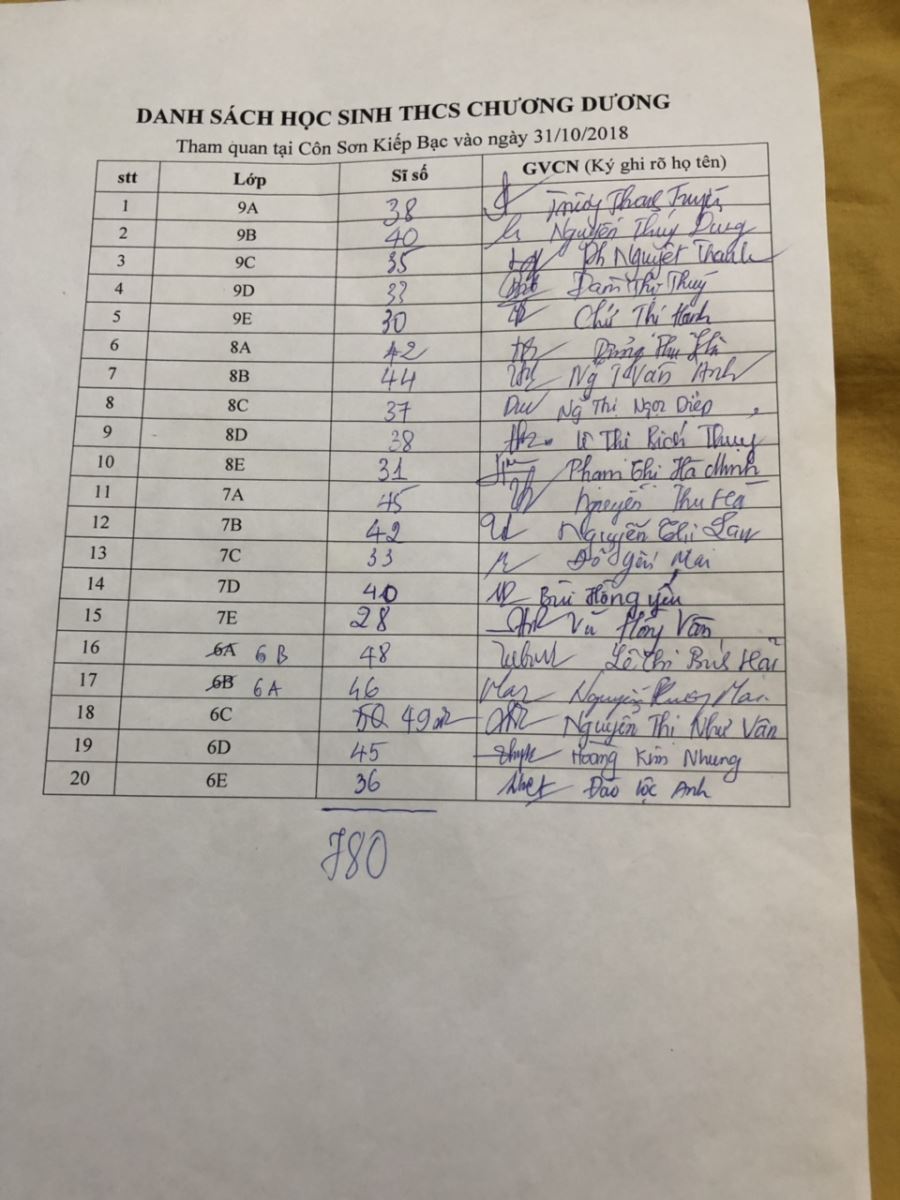 DANH SÁCH HỌC SINH THCS CHƯƠNG DƯƠNG
Tham quan tại Côn Sơn Kiếp Bạc vào ngày 31/10/2018
stt Lớp Sĩ số GVCN (Ký ghi rõ họ tên)
1 9A 38
2 9B 40 Nguyễn Thúy Dung
3 9C 35 Ph Nguyệt Thanh
4 9D 33 Đàm Thị Thúy
5 9E 30 Chử Thị Hạnh
6 8A 42 Thu Hà
7 8B 44 Ng T Vân Anh
8 8C 37 Ng Thị Ngọc Diệp
9 8D 38 Lê Thi Bích Thuỷ
10 8E 31 Phạm Thị Hà Minh
11 7A 45 Nguyễn Thu Hà
12 7B 42 Nguyễn Thị Lan
13 7C 33 Đỗ Yến Mai
14 7D 40 Bùi Hồng Yến
15 7E 28 Vũ Hồng Vân
16 6A 6B 48 Lê Thi Hải
17 6B 6A 46 Nguyễn Phương Mai
18 6C 50 49 Nguyễn Thị Như Vân
19 6D 45 Hoàng Kim Nhung
20 6E 36 Đào Lộc Anh
780